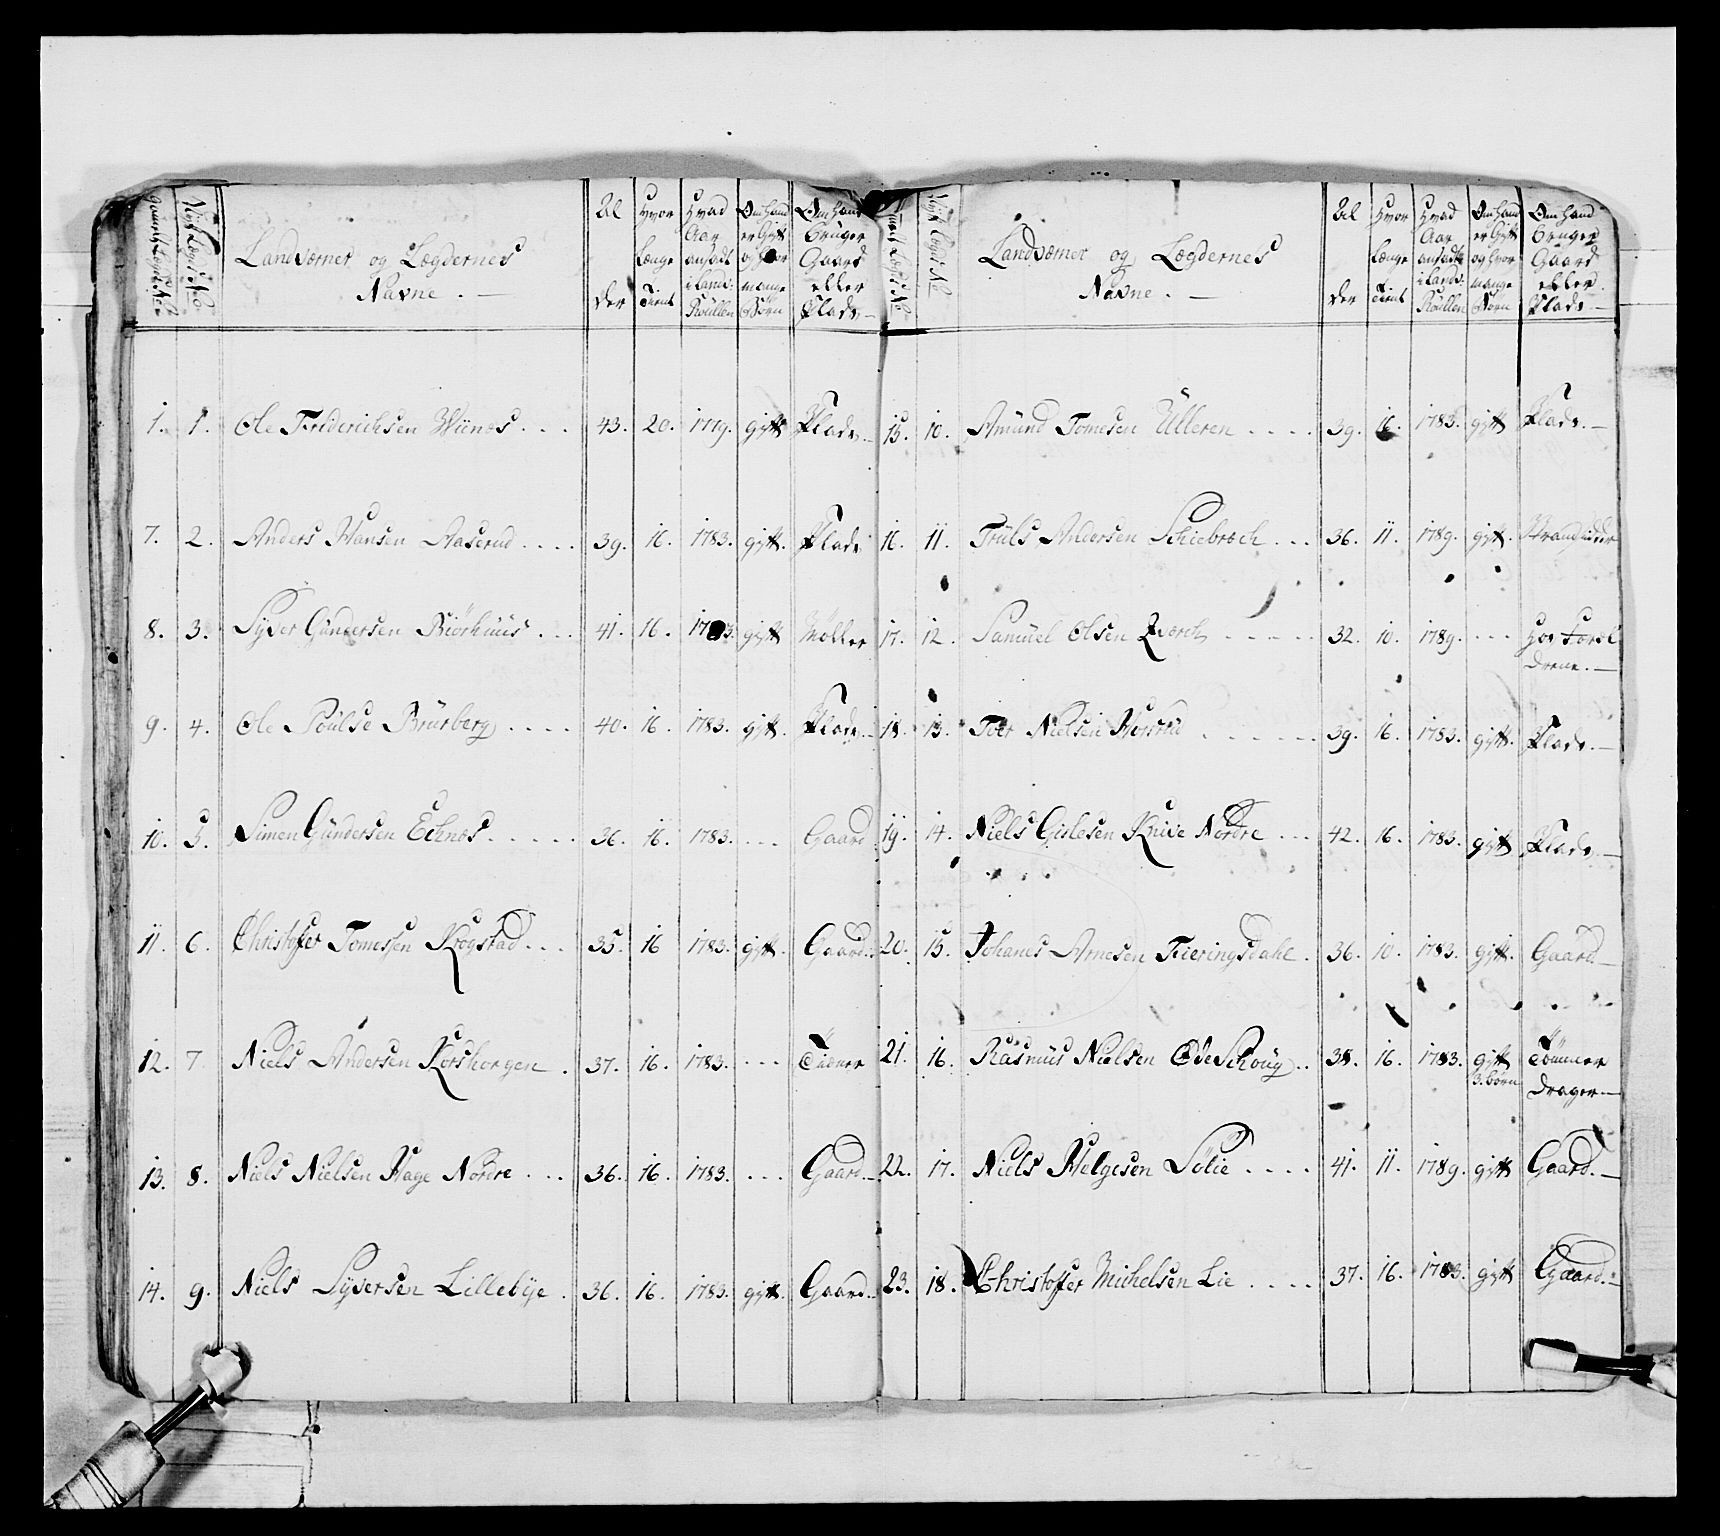 Gamle Lægds No
Nye Lægds No
Landværnet og Lægdernes
Navne. —
Al
der
Hvor
Længe
Tient
Hvad
Aar
ansadt
i Landv:
Roullen
Om Hand
er Gift
og hvor
mange
Børn
Om Hand
bruger
Gaard
eller
Plads —
1. 1. Ole Friderichsen Wiinæs . . . 43. 20. 1779. gift Plads. —
7. 2. Anders Hansen Aaserud . . . . 39. 16. 1783. gift. Plads
8. 3. Syver Gundersen Biörhuus . . . 41. 16. 1783. gift Møller
9. 4. Ole Poulse Brürberg . . . . 40. 16. 1783. gift. Plads. —
10. 5. Simen Gündersen Echnæs . . . . . 36. 16. 1783. . . . Gaard
11. 6. Christoffer Tomessen Krogstad . . . 35. 16 1783. gift. Gaard. .
12. 7. Niels Andersen Korshorgen . 37. 16. 1783. . . . Tiener
13. 8. Niels Nielsen Hage Nordre . . . 36. 16. 1783. . . . Gaard. —
14. 9. Niels Syversen Lillebye . 36. 16. 1783. gift. Gaard. .
Gamle Lægds No
Nye Lægds No
Landværnet og Lægdernes
Navne. —
Al
der
Hvor
Længe
Tient
Hvad
Aar
ansadt
i Landv:
Roullen
Om Hand
er Gift
og hvor
mange
Børn
Om Hand
bruger
Gaard
eller
Plads —
15. 10. Amünd Tomesen Ülleren . . . . 39. 16. 1783. gift Plads. —
16. 11. Trüls Andersen Schiebræch . . . 36. 11. 1789. gift. Strandsidder
17. 12. Samüel Olsen Qværch . . . . . 32. 10. 1789. . . . Hos Foræl
drene. —
18. 13. Tver Nielsen . . . . . 39. 16. 1783. gift. Plads. —
19. 14. Niels Gislesen Knive Nordre . . . 42. 16. 1783. gift Plads. —
20. 15. Johanes Arnesen Tieringsdahl . 36. 10. 1783. gift. Gaard. —
21. 16. Rasmüs Nielsen Øde Schoüg . . 38. 16. 1783. gift Tømmer
3. børn drager —
22. 17. Niels Helgesen Solie . . . . 41. 11. 1789. gift Gaard. —
23. 18. Christoffer Michelsen Lie . . . . 37. 16. 1783. gift Gaard. —